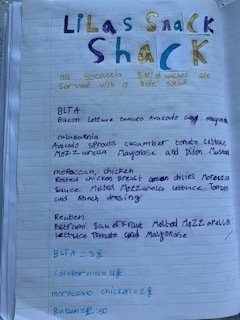 LiLas SnacK
ShacK
all Focaccia Sandwiches are
served with a side salad
BLTA
Bacon Lettuce tomato Avocado and
calafornia
Avocado sprouts cucumber tomato Lettuce
Mozzarella Mayonase and Dijon Mustard
moroccan, chicken
Rosted chicken Breast chilies Morocco
Sauce Melted Mozzarella lettuce Tomato
and Ranch dressing
Reuben
Pastrami Sauerfraut Melted Mozzarella
lettuce Tomato and Mayonase
BLTA =
calafornia = 4
moroccano chicken = 2
Ruben =